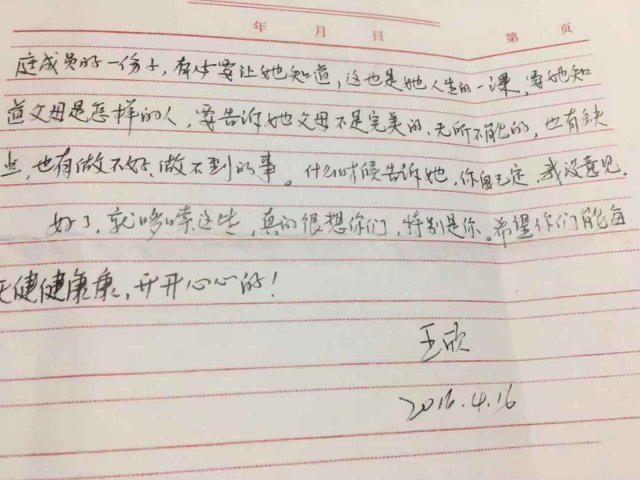 年 月 日 第 页
庭成员的一份子，有必要让她知道，这也是她人生的一课，要她知
道父母是怎样的人，要告诉她父母不是完美的、无所不能的，也有缺
点，也有做不好、做不到的事。什么时候告诉她，你自己定，我没意见。
好了，就啰嗦这些，真的很想你们，特别是你。希望你们能每
天健健康康，开开心心的！
王欣
2016.4.16